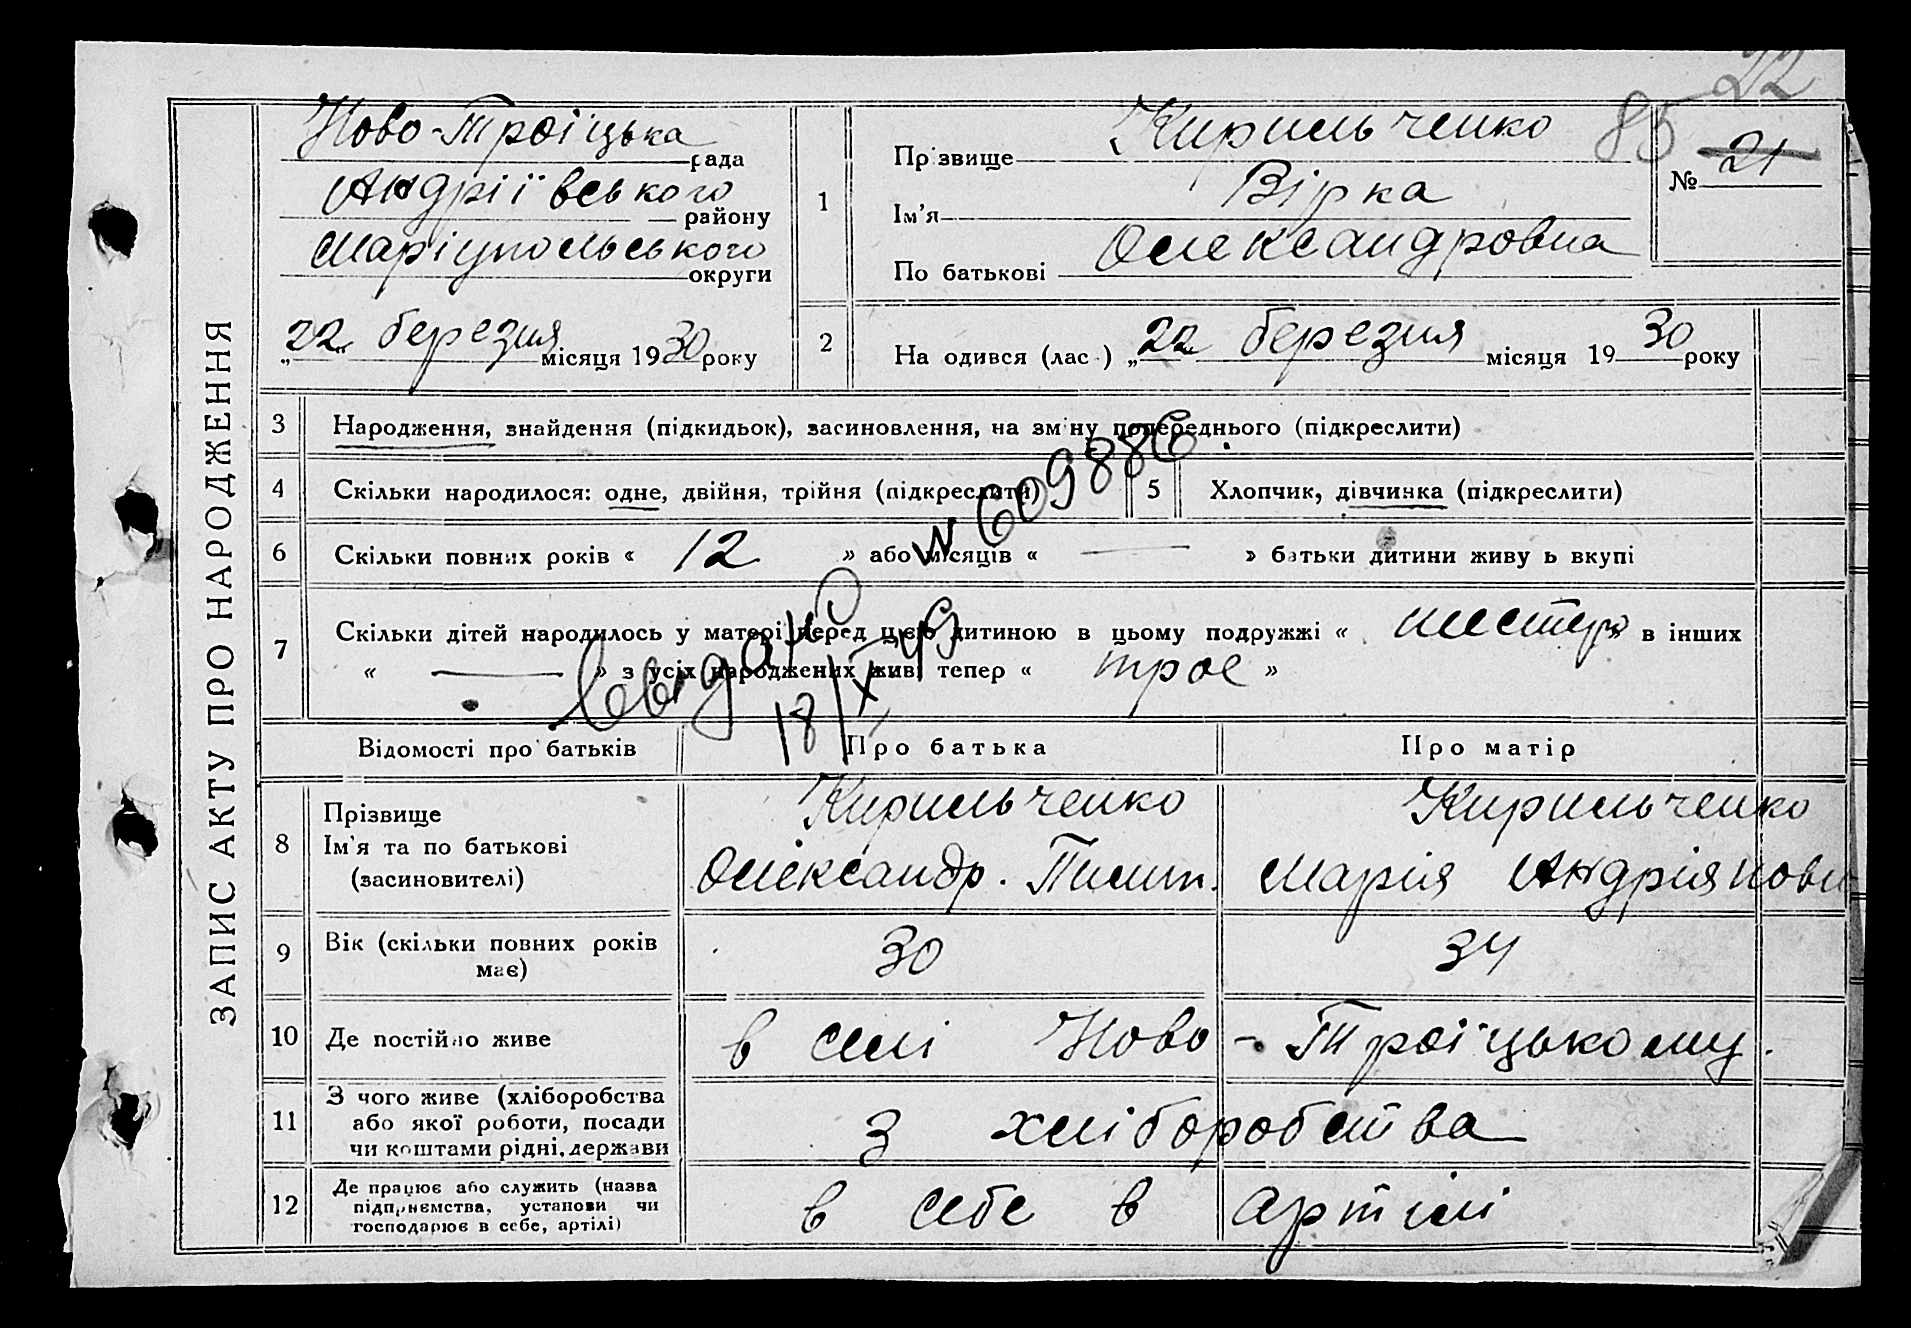 22
85
ЗАПИС АКТУ ПРО НАРОДЖЕННЯ
Ново-Троїцька рада
Андріївського району
Маріупольського округи
„22“ березня місяця 1930 року
1
Прізвище Кирильченко
Ім’я Вірка
По батькові Олександровна
№ 21
2
На одився (лас ) „22 березня місяця 1930 року
3 Народження, знайдення (підкидьок), засиновлення, на зм ну попереднього (підкреслити)
4 Скільки народилося: одне, двійня, трійня (підкреслити) 5 Хлопчик, дівчинка (підкреслити)
6 Скільки повних років « 12 » або місяців « — » батьки дитини живу ь вкупі
7 Скільки дітей народилось у матері перед цією дитиною в цьому подружжі « шестеро » в інших
« — » з усіх народжених живі тепер « троє »
выдано № 609886
18/XI 49
Відомості про батьків Про батька Про матір
8 Прізвище
Ім’я та по батькові
(засиновителі)
Кирильченко
Олександр.
Кирильченко
Марія Андріянов
9 Вік (скільки повних років
має)
30 34
10 Де постійно живе в селі Ново-Троїцькому.
11 З чого живе (хліборобства
або якої роботи, посади
чи коштами рідні, держави
з хліборобства
12 Де працює або служить (назва
підприємства, установи чи
господарює в себе, артілі)
в себе в артілі